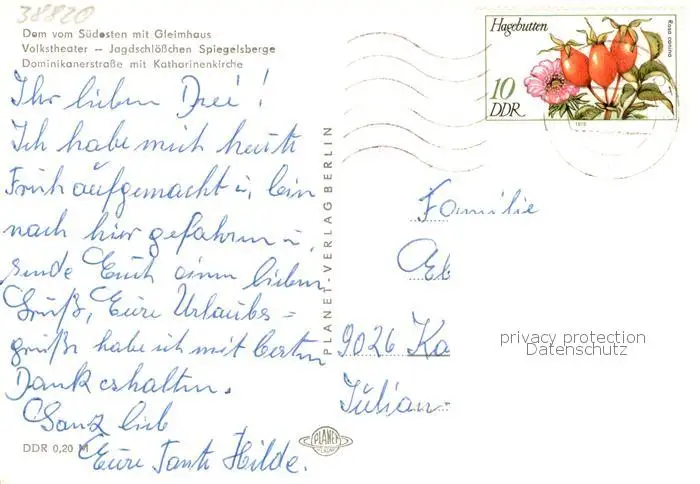 38820
Dom vom Südosten mit Gleimhaus
Volkstheater – Jagdschlößchen Spiegelsberge
Dominikanerstraße mit Katharinenkirche
Ihr lieben Drei!
Ich habe mich heute
Früh aufgemacht u, bin
nach hier gefahren u,
sende Euch einen lieben
Gruß, Eure Urlaubs=
grüße habe ich mit besten
Dank erhalten.
Ganz lieb
Eure Tante Hilde.
DDR 0,20 M
PLANET-VERLAG BERLIN
PLANET
Hagebutten
Rosa canina
10
DDR
Familie
Eb
9026 Ka
Julian-
privacy protection
Datenschutz